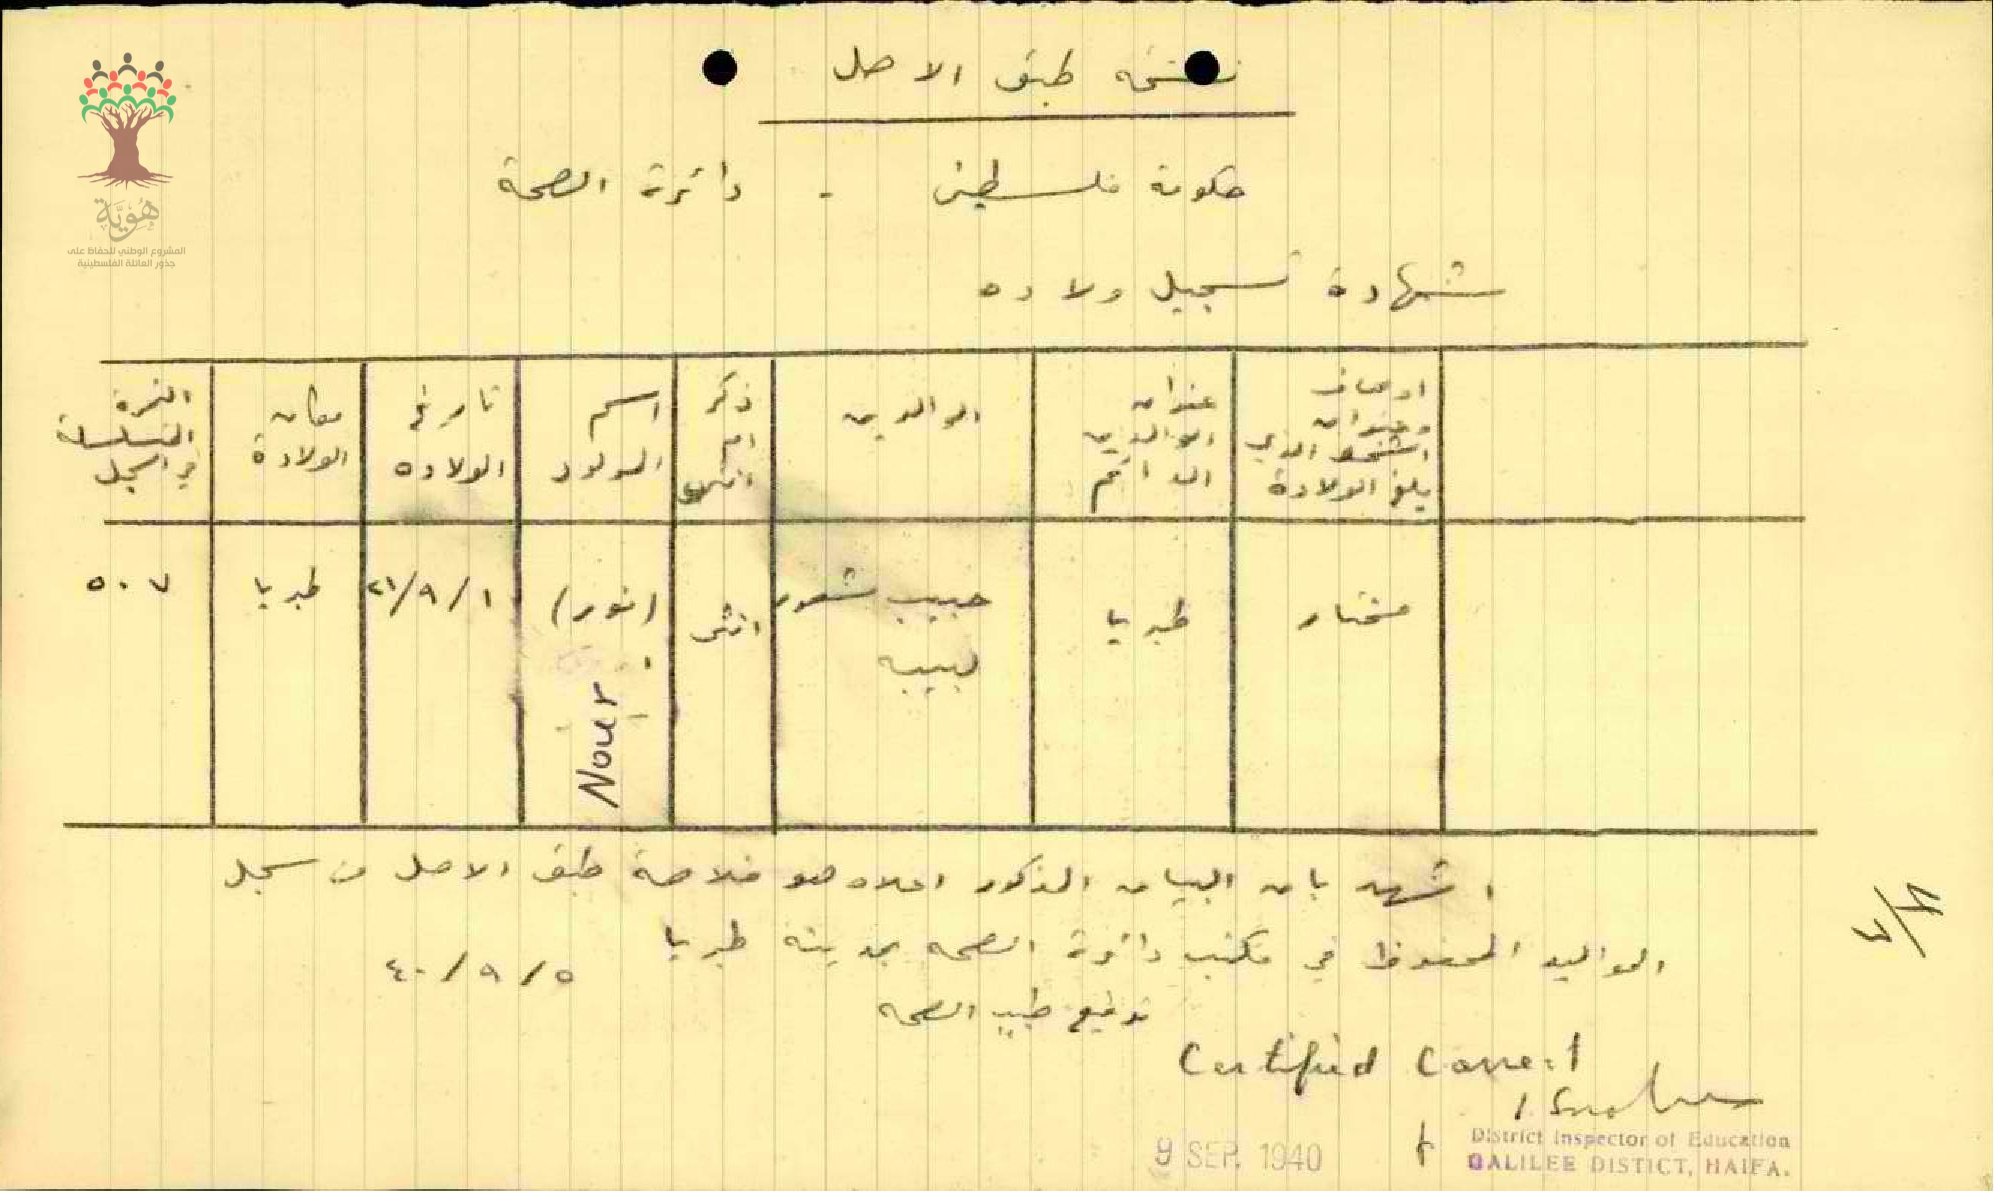 نسخة طبق الاصل
هوية
المشروع الوطني للحفاظ على
جذور العائلة الفلسطينية
حكومة فلسطين - دائرة الصحة
شهادة تسجيل ولاده
اوصاف
وعنوان
الشخص الذي
بلغ الولادة
عنوان
الوالدين
الدائم
الوالدين
ذكر
ام
انثى
اسم
المولود
تاريخ
الولاده
مكان
الولادة
النمرة
المتسلسلة
في السجل
مختار
طبريا
حبيب شعور
لبيبه
انثى
(نور)
Nour
٢١/٩/١
طبريا
٥٠٧
اشهد بان البيان المذكور اعلاه هو خلاصة طبق الاصل من سجل
المواليد المحفوظ في مكتب دائرة الصحه بمدينة طبريا
٤٠/٩/٥
توقيع طبيب الصحه
Certified Correct
District Inspector of Education
GALILEE DISTICT, HAIFA.
9 SEP. 1940